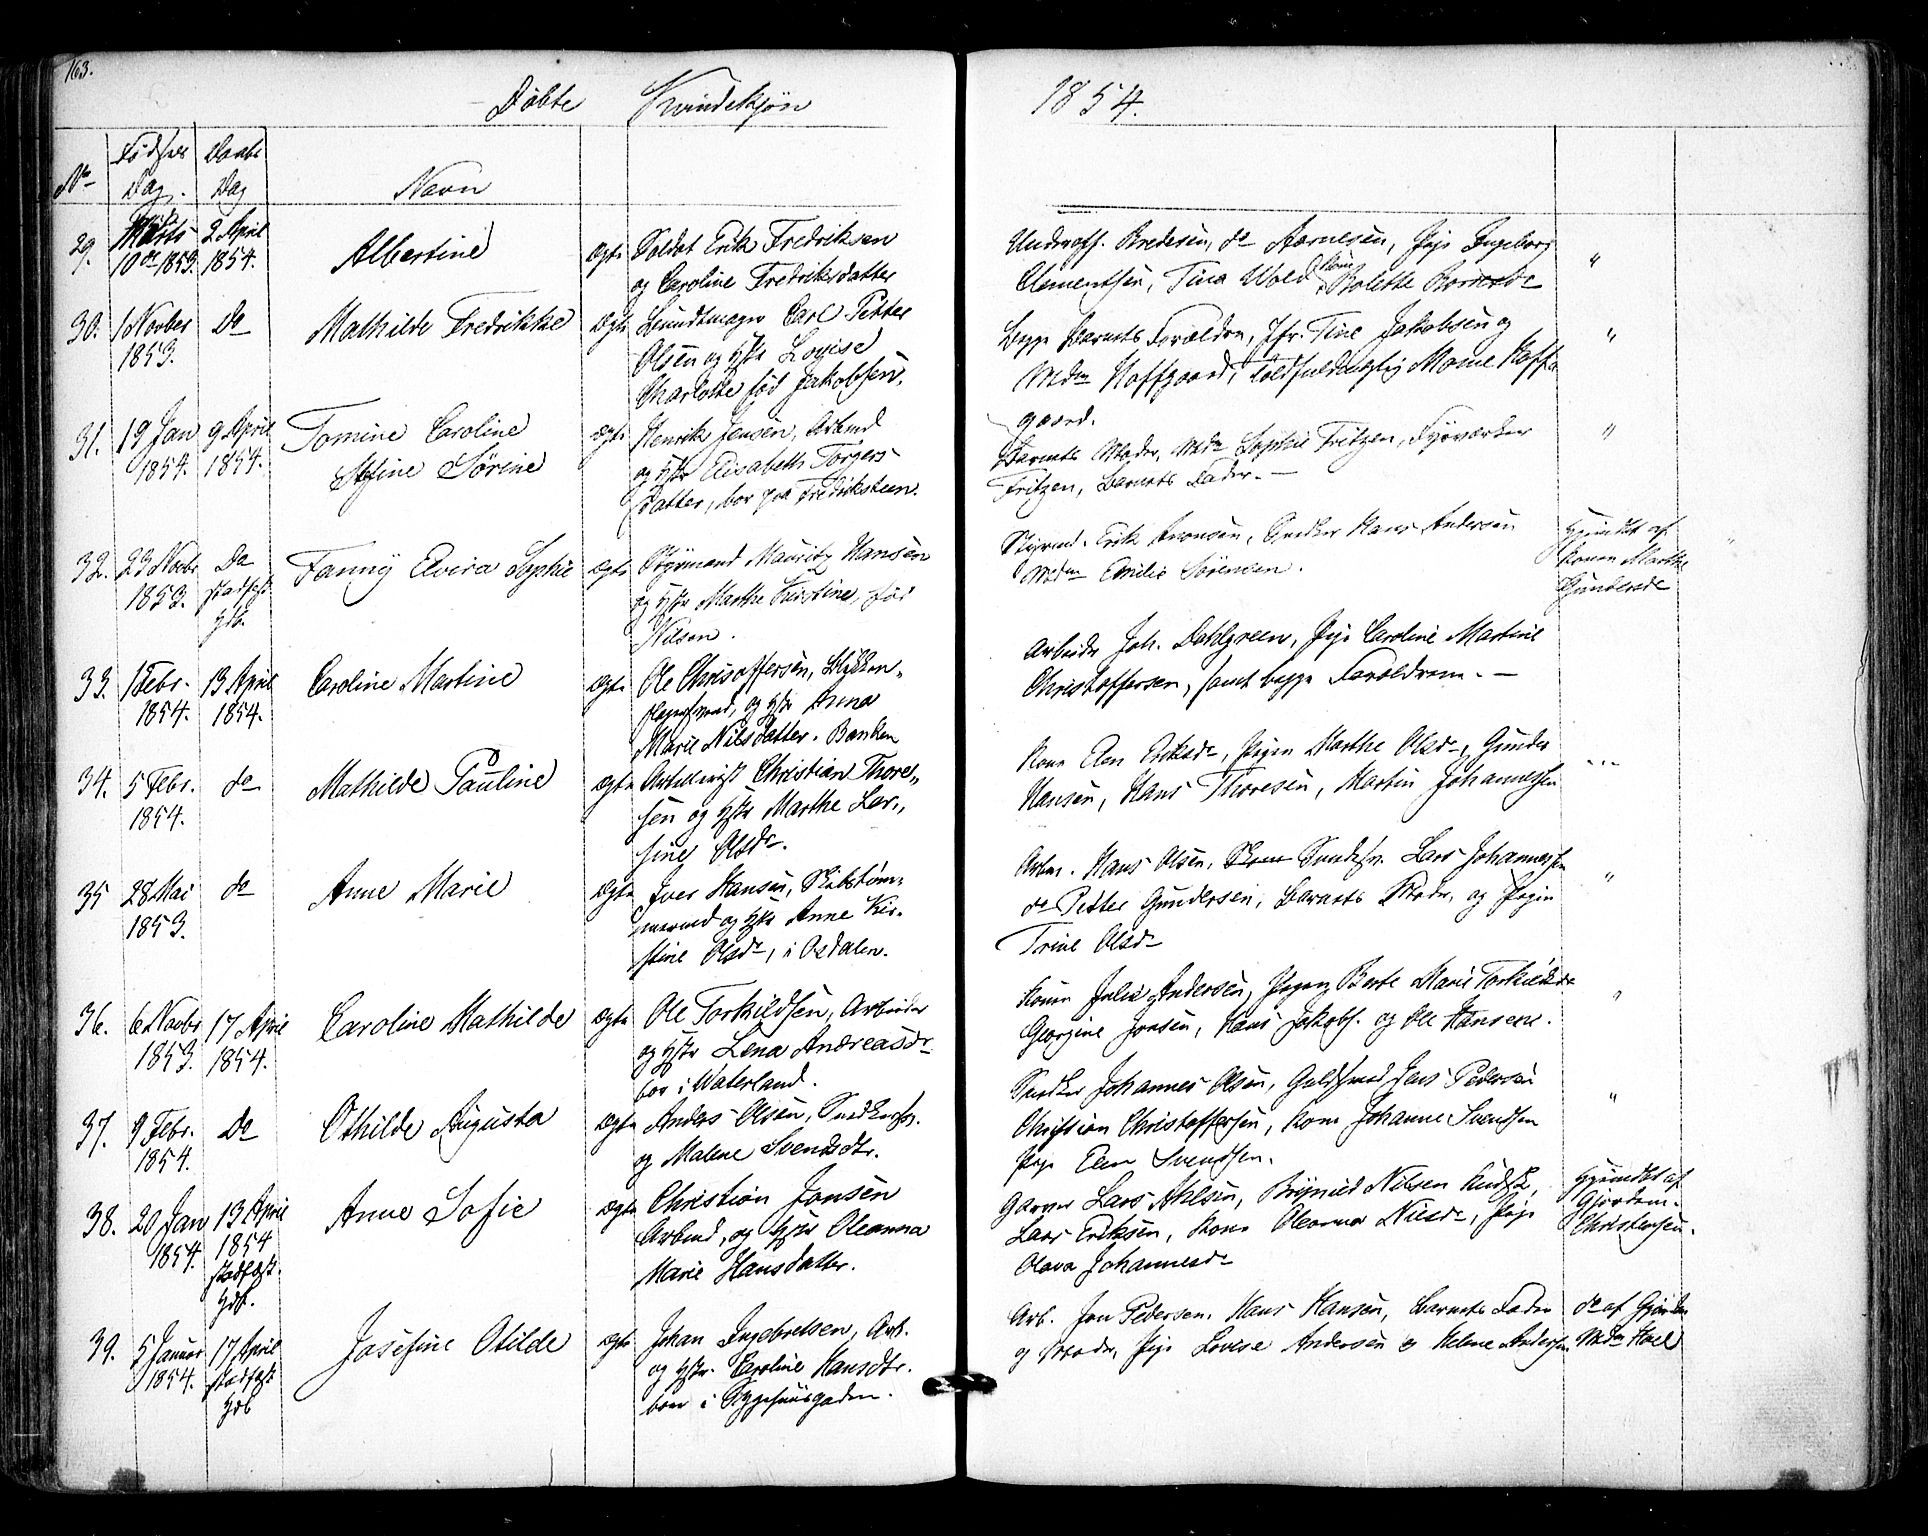 163.
Døbte Kvindekjøn
1854.
No Fødsels Dag. Daabs Dag Navn
29. 10de 1853. 2 April 1854. Albertine ægte Soldat Erik Fredriksen
og Caroline Fredriksdatter
Underoff. Bredesen, do Aarnesen, Pige Ingeborg
Clementsen, Tina Wold, Kone Bolette "
30. 1 Novber 1853. Do Mathilde Fredrikke ægte Carl Petter
Olsen og Hstr Lovise
Charlotte fød Jakobsen.
Begge Barnets Forældre, Jfr. Tine Jakobsen og
Mdm Hoffgaard, Toldfuldmægtig Mone Hoff-
gaard. "
31. 19 Jan 1854. 9 April 1854. Tomine Caroline
Stefine Sørine ægte Henrik Jensen, Arbmd
og Hstr Elisabeth Torgers-
datter, bor paa Fredriksteen.
Barnets Moder, Mdm Sophie Fritzen, Fyrværker
Fritzen, Barnets Fader. — "
32. 23 Novbr 1853. Do stadfæst Hdb. Fanny Elvira Sophie ægte Styrmand Mauritz Hansen
og Hstr Marthe Kirstine, fød
Nilsen.
Styrmd. Erik Aronsen, Snedker Hans Andersen
Mdm Emilie Sørensen.
Hjemdøbt af
Konen Marthe
Gundersdr
33. 1 Febr. 1854. 13 April 1854. Caroline Martine ægte Ole Chrisoffersen, Blikken-
slagersvend, og Hstr Anna
Marie Nilsdatter. Banken
Arbeider Joh. Dahlgreen, Pige Caroline Martine
Christoffersen, samt begge Forældrene. —
34. 5 Febr. 1854. do Mathilde Pauline ægte Artillerist Christian Thore-
sen og Hstr Marthe Lar-
sine Olsdr.
Kone Elen Eriksdr, Pigen Marthe Olsdr, Gunder
Hansen, Hans Thoresen, Martin Johannesen
35 28 Mai 1853. do Anne Marie ægte Iver Hansen, Skibstøm-
mermd og Hstr Anne Kir-
stine Olsdr, i Osdalen.
Arbm. Hans Olsen, Lars Johannessen
do Petter Gundersen, Barnets Moder, og Pigen
Trine Olsdr "
36. 6 Novbr 1853. 17 April 1854. Caroline Mathilde ægte Ole Torkildsen, Arbeider
og Hstr Lena Andreasdr
bor i Waterland.
Konen Julie Andersen, Pigen Berte Marie Torkildsdr
Georgine Jonsen, Hans Jakobs. og Ole Hansen. "
37. 9 Febr. 1854. Do Othilde Augusta ægte Anders Olsen, Snedkersv.
og Malene Svendsdtr.
Snedker Johannes Olsen, Guldsmed Jens Pedersen
Christian Christoffersen, Kone Johanne Svendsen
Pige Elen Svendsen. "
38. 20 Jan 1854. 13 April 1854 stadfæst. Hdb. Anne Sofie ægte Christian Jansen
Arbmd, og Hstr Oleanna
Marie Hansdatter.
Garver Lars Ahlsen, Brynild Nilsen
Lars Eriksen, Kone Oleanna Nilsdr, Pige
Olava Johannesdr
Hjemdøbt af
Gjordem.
Christensen.
39. 5 Januar 1854. 17 April stadfæst Hdb Josefine Otilde ægte Johan Ingebretsen, Arb.
og Hstr. Caroline Hansdtr.
boer i Sygehuusgaden.
Arb. Jon Pedersen, Hans Hansen, Barnets Fader
og Moder, Pige Lovise Andersen og Helene Andersen
do af Gjordem
Mdm Hoel